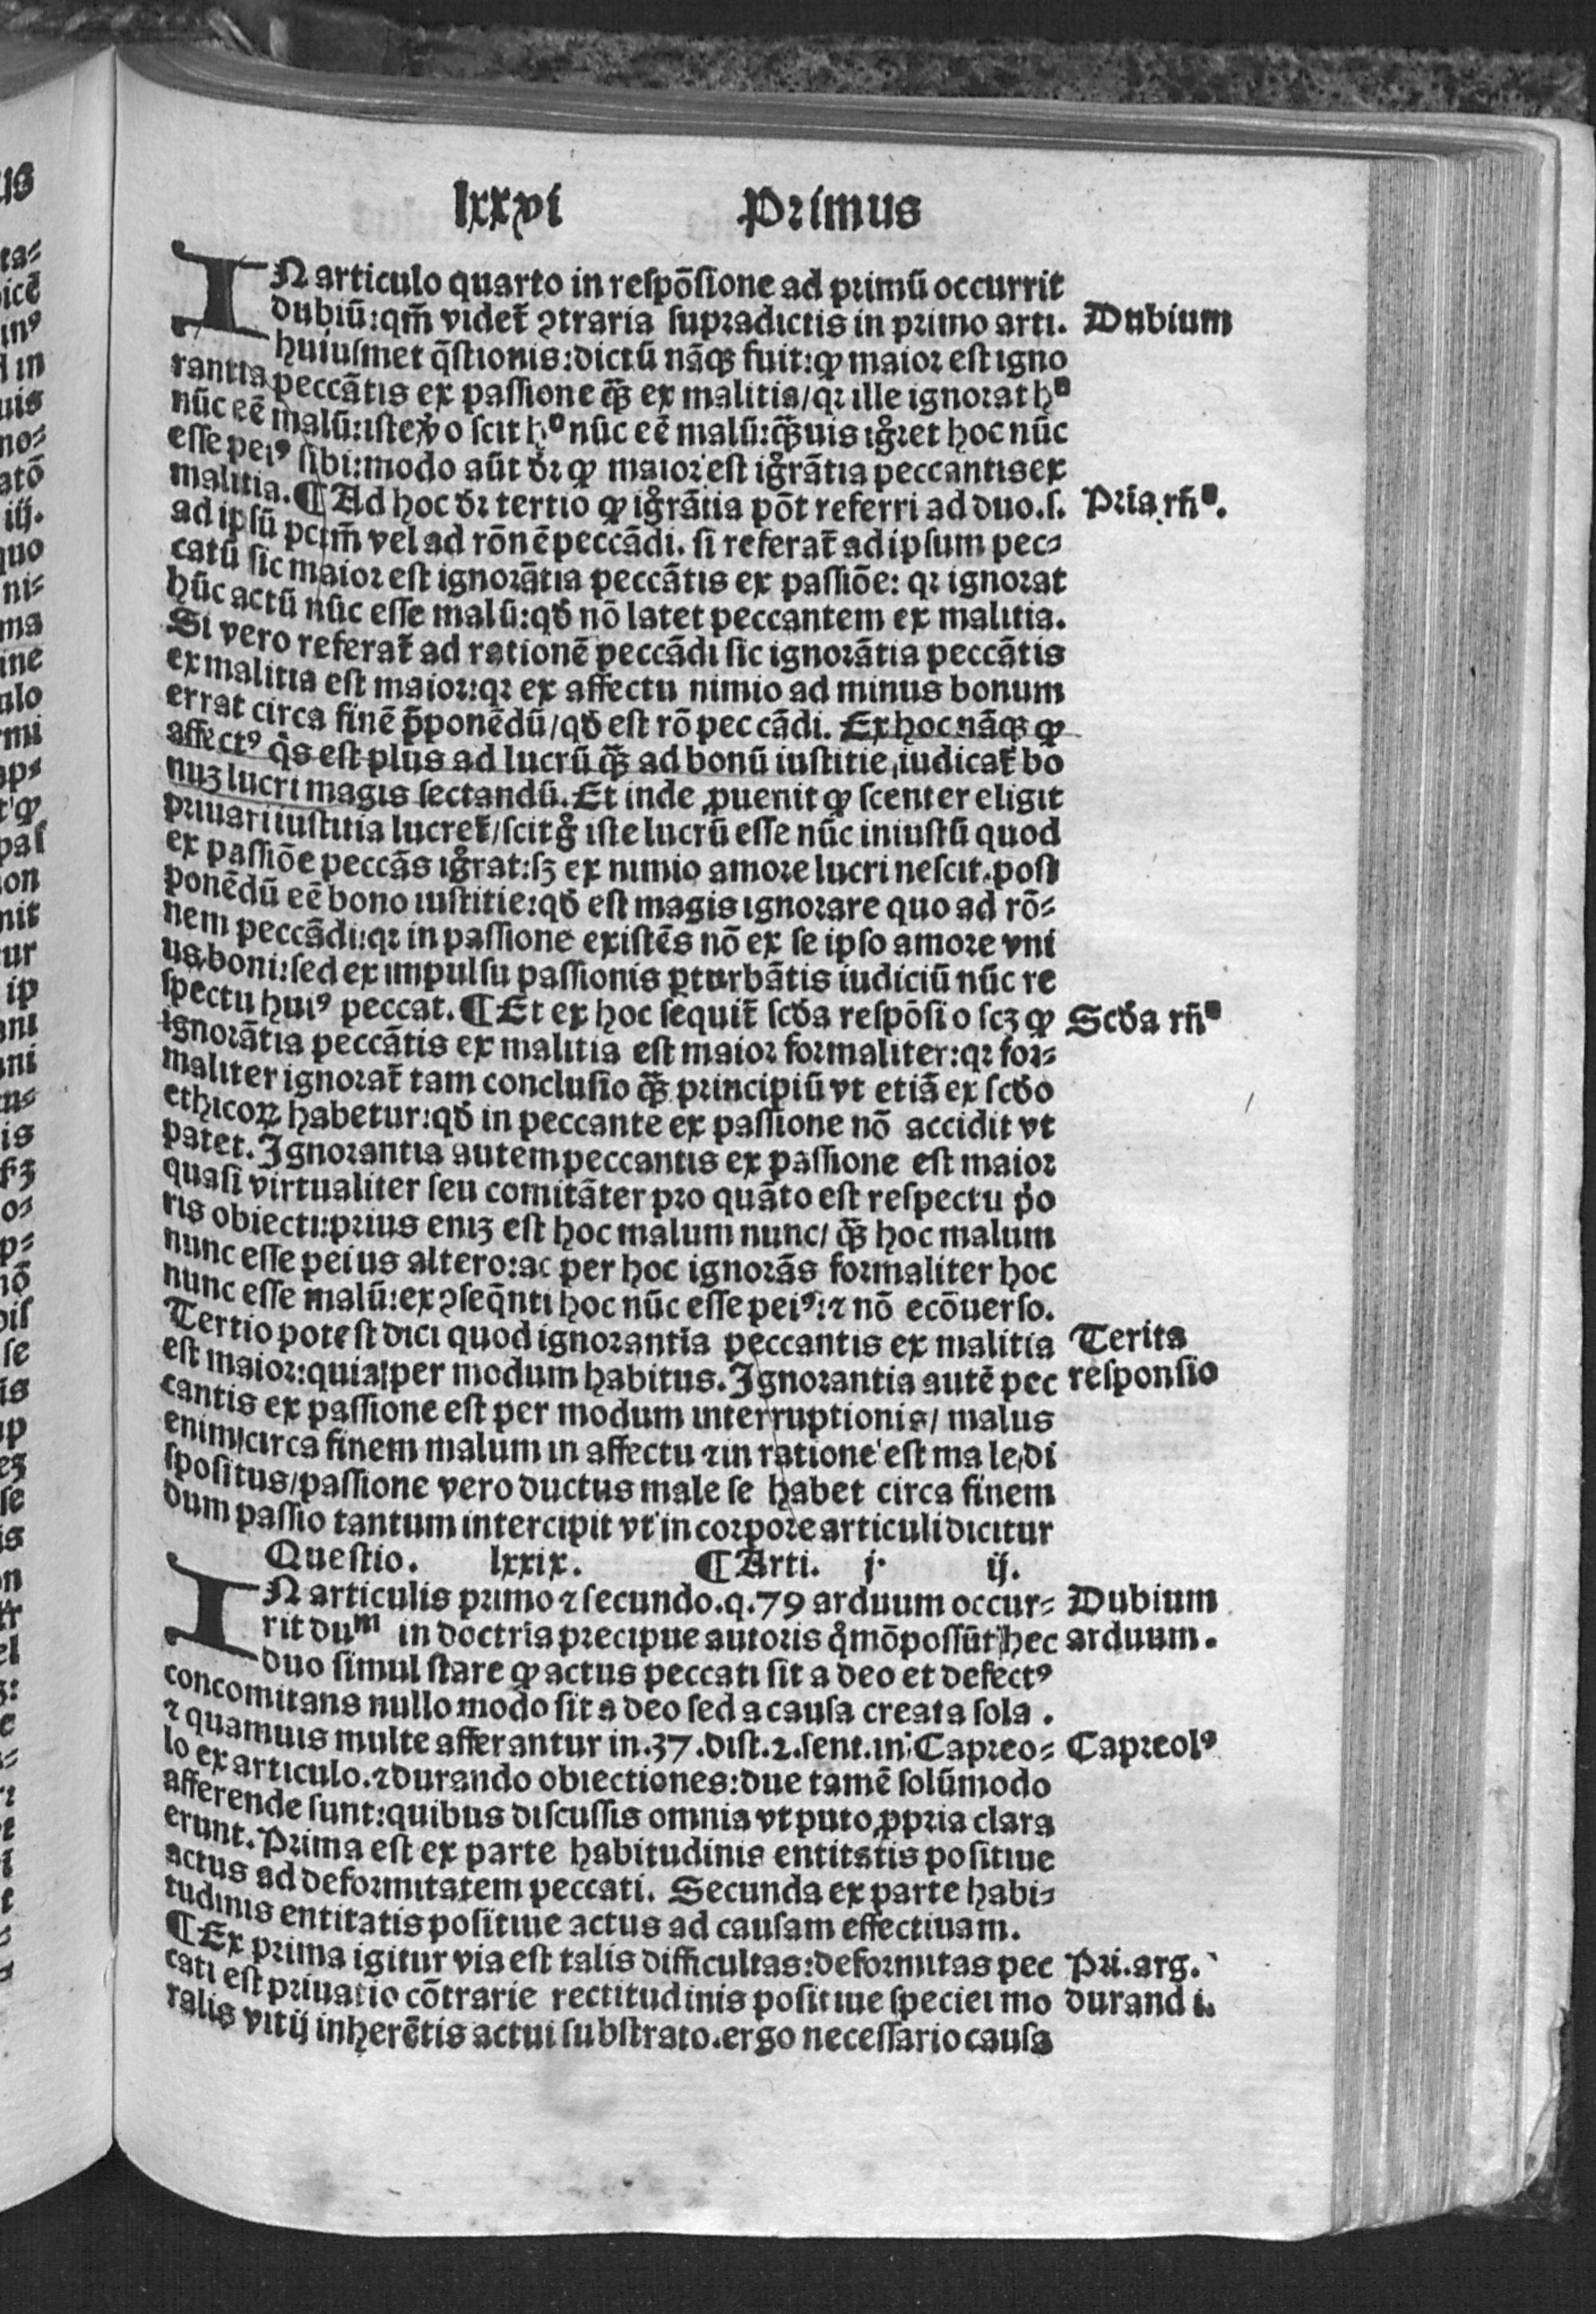 lxxvi Primus
IN articulo quarto in respōsione ad primū occurrit
dubiū:qm̄ videt̄ ꝯtraria supradictis in primo arti.
Dubium
huiusmet q̄stionis:dictū nāqꝫ fuit:ꝙ maior est igno
rantia peccātis ex passione q̄ꝫ ex malitia/qꝛ ille ignorat hº
nūc eē malū:iste ꝟo scit hº nūc eē malū:q̄ꝫuis igr̄et hoc nūc
esse peiꝰ sibi:modo aūt dꝛ ꝙ maior est igr̄ātia peccantis ex
malitia.¶Ad hoc dꝛ tertio ꝙ igr̄ātia pōt referri ad duo.s.
Pria rn̄º.
ad ipsū pctm̄ vel ad rōnē peccādi. si referat̄ ad ipsum pec⸗
catū sic maior est ignorātia peccātis ex passiōe: qꝛ ignorat
hūc actū nūc esse malū:qđ nō latet peccantem ex malitia.
Si vero referat̄ ad rationē peccādi sic ignorātia peccātis
ex malitia est maior:qꝛ ex affectu nimio ad minus bonum
errat circa finē p̄ponēdū/qđ est rō peccādi. Ex hoc nāqꝫ ꝙ
affectꝰ q̇s est plus ad lucrū q̄ꝫ ad bonū iustitie,iudicat̄ bo
nuꝫ lucri magis sectandū. Et inde ꝓuenit ꝙ scenter eligit
priuari iustitia lucret̄/scit gͦ iste lucrū esse nūc iniustū quod
ex passiōe peccās igr̄at:sꝫ ex nimio amore lucri nescit.post
ponēdū eē bono iustitie:qđ est magis ignorare quo ad rō⸗
nem peccādi:qꝛ in passione existēs nō ex se ipso amore vni
us boni:sed ex impulsu passionis ꝑturbātis iudiciū nūc re
spectu huiꝰ peccat.¶Et ex hoc sequit̄ scđa respōsio scꝫ ꝙ
Scđa rn̄º
ignorātia peccātis ex malitia est maior formaliter:qꝛ for⸗
maliter ignorat̄ tam conclusio q̄ꝫ principiū vt etiā ex scđo
ethicoꝝ habetur:qđ in peccante ex passione nō accidit vt
patet. Ignorantia autem peccantis ex passione est maior
quasi virtualiter seu comitāter pro quāto est respectu p̄o
ris obiecti:prius eniꝫ est hoc malum nunc/ q̄ꝫ hoc malum
nunc esse peius altero:ac per hoc ignorās formaliter hoc
nunc esse malū:ex ꝯseq̄nti hoc nūc esse peiꝰ:⁊ nō ecōuerso.
Tertio potest dici quod ignorantia peccantis ex malitia
Terita
est maior:quia per modum habitus. Ignorantia autē pec
responsio
cantis ex passione est per modum interruptionis/ malus
enim/circa finem malum in affectu ⁊ in ratione est male di
spositus/passione vero ductus male se habet circa finem
dum passio tantum intercipit vt in corpore articuli dicitur
Questio. lxxix. ¶Arti. j. ij.
IN articulis primo ⁊ secundo.q.79 arduum occur⸗
Dubium
rit duᵐ in doctria precipue autoris q̊mō possūt hec
arduum.
duo simul stare ꝙ actus peccati sit a deo et defectꝰ
concomitans nullo modo sit a deo sed a causa creata sola .
⁊ quamuis multe afferantur in.37.dist.2.sent.in Capreo⸗
Capreolꝰ
lo ex articulo.⁊ durando obiectiones:due tamē solūmodo
afferende sunt:quibus discussis omnia vt puto ꝓpria clara
erunt. Prima est ex parte habitudinis entitatis positiue
actus ad deformitatem peccati. Secunda ex parte habi⸗
tudinis entitatis positiue actus ad causam effectiuam.
¶Ex prima igitur via est talis difficultas:deformitas pec
Pri.arg.
cati est priuatio cōtrarie rectitudinis positiue speciei mo
durandi.
ralis vitij inherētis actui substrato.ergo necessario causa